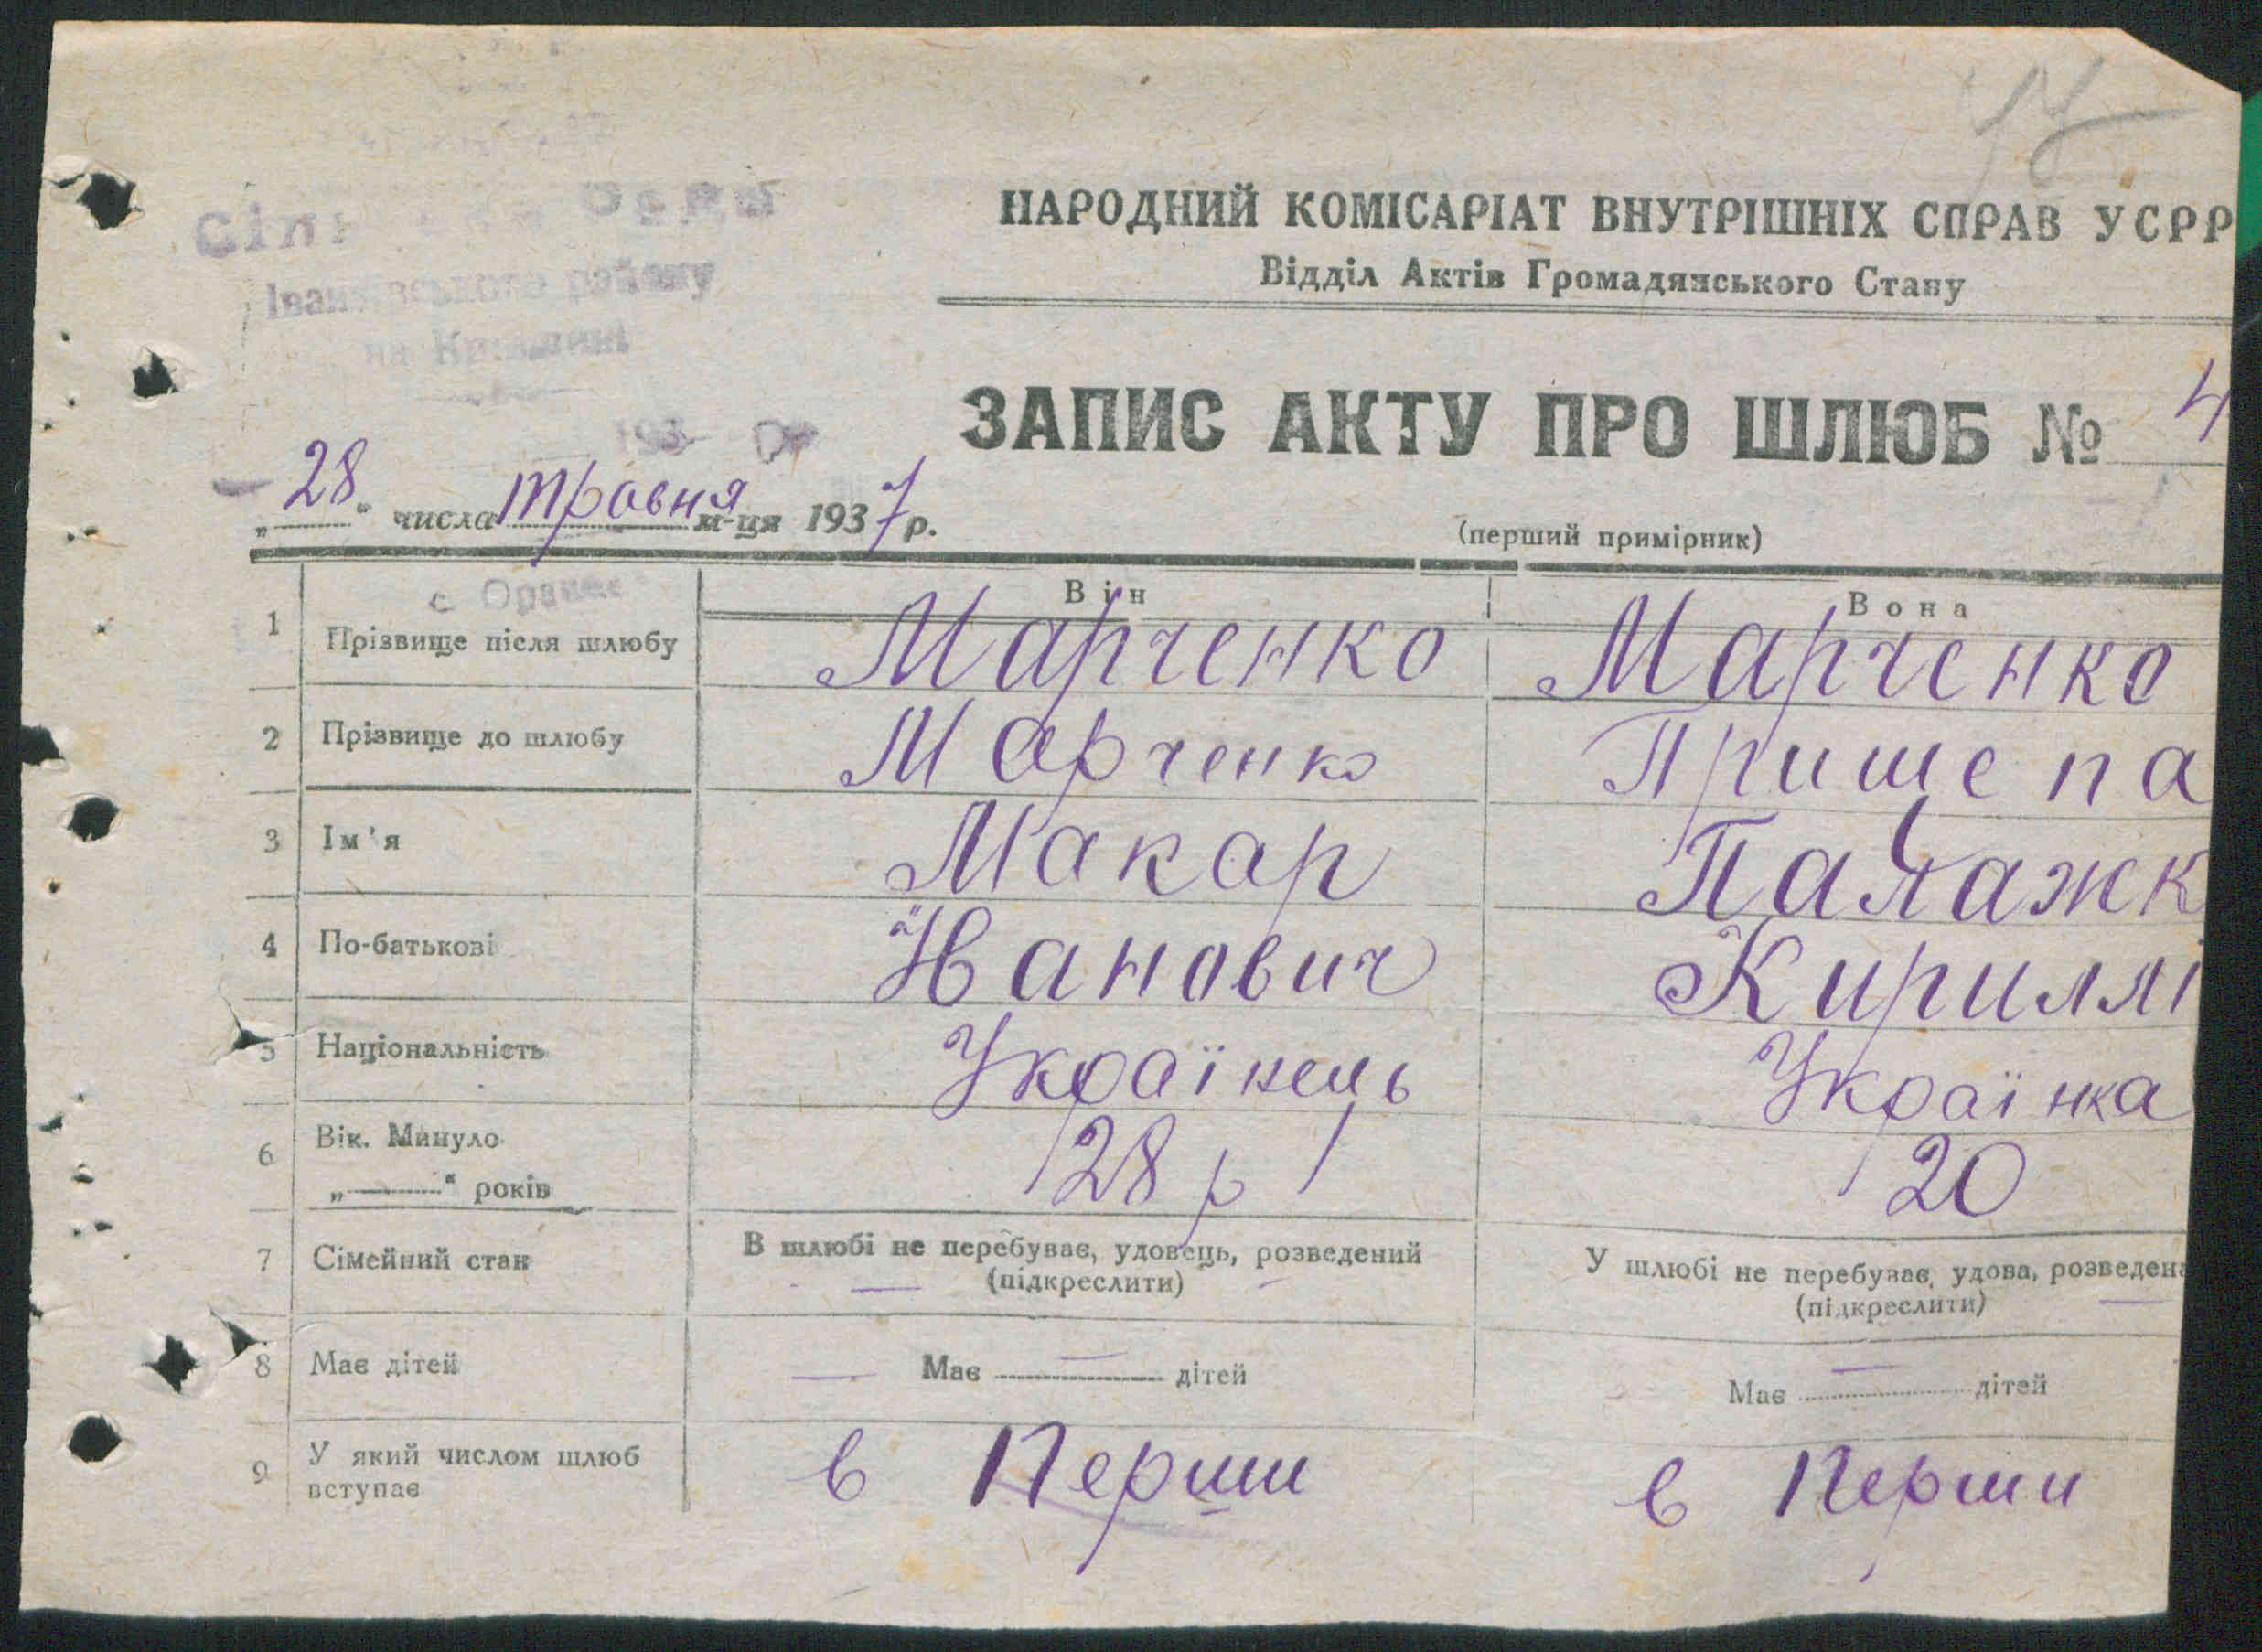 НАРОДНИЙ КОМІСАРІАТ ВНУТРІШНІХ СПРАВ УСРР
Відділ Актів Громадянського Стану
Іванківського району
ЗАПИС АКТУ ПРО ШЛЮБ № 4
„28“ числа травня м-ця 1937 р.
(перший примірник)
Він Вона
1 Прізвище після шлюбу Марченко Марченко
2 Прізвище до шлюбу Марченко Пришепа
3 Ім'я Макар Палажк
4 По-батькові Йванович Кириллі
5 Національність Українець Українка
6 Вік. Минуло „——“ років 28 р 20
7 Сімейний стан В шлюбі не перебуває, удовець, розведений (підкреслити) У шлюбі не перебуває, удова, розведена (підкреслити)
8 Має дітей Має — дітей Має — дітей
9 У який числом шлюб вступає в Перши в Перши